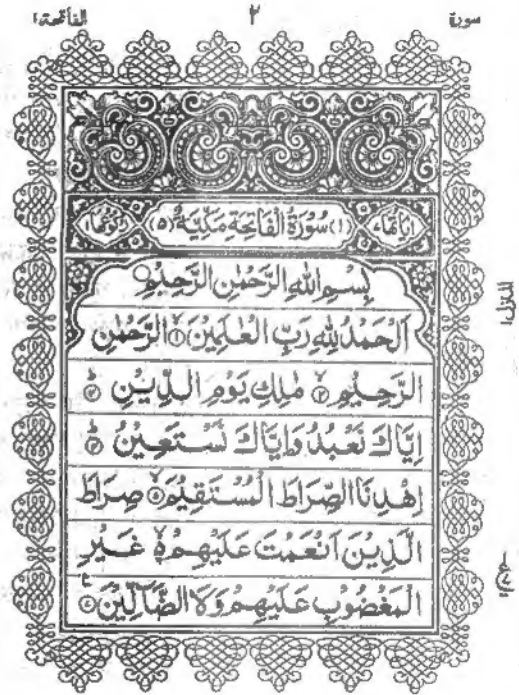 سورة ٢ الفاتحة١
اٰیاتھا٧ (١) سُوْرَةُ الْفَاتِحَةِ مَكِّيَّةٌ (٥) رکوعھا١
بِسْمِ اللهِ الرَّحْمٰنِ الرَّحِيْمِ
اَلْحَمْدُ لِلّٰهِ رَبِّ الْعٰلَمِيْنَ ۙ﴿١﴾ الرَّحْمٰنِ
الرَّحِيْمِ ۙ﴿٢﴾ مٰلِكِ يَوْمِ الدِّيْنِ ؕ﴿٣﴾
اِيَّاكَ نَعْبُدُ وَاِيَّاكَ نَسْتَعِيْنُ ؕ﴿٤﴾
اِهْدِنَا الصِّرَاطَ الْمُسْتَقِيْمَ ۙ﴿٥﴾ صِرَاطَ
الَّذِيْنَ اَنْعَمْتَ عَلَيْهِمْ ۙ۬ۙ﴿٦﴾ غَيْرِ
الْمَغْضُوْبِ عَلَيْهِمْ وَلَا الضَّآلِّيْنَ ؑ﴿٧﴾
المنزل١